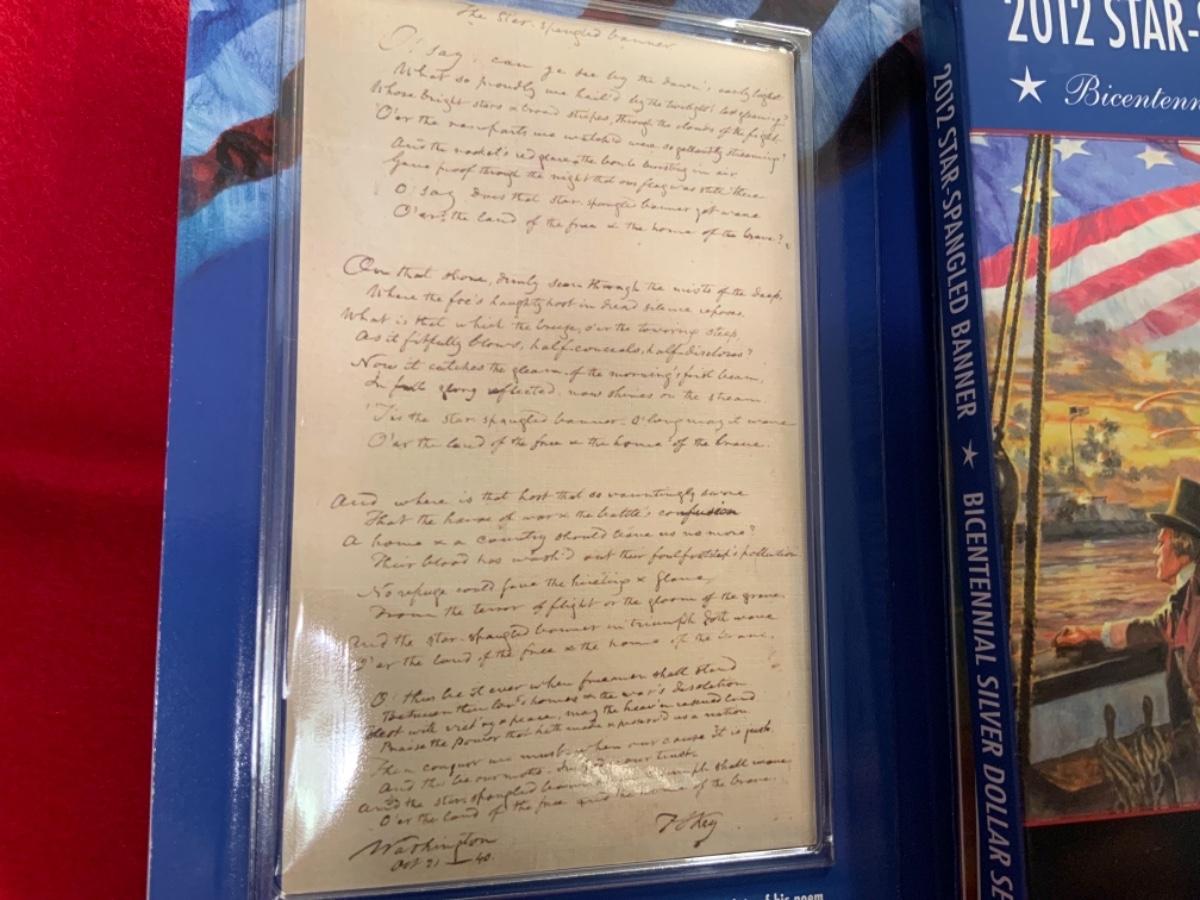 The Star-spangled banner
O! say, can ye see by the dawn's early light
What so proudly we hail'd by the twilight's last gleaming?
Whose bright stars & broad stripes, through the clouds of the fight,
O'er the ramparts we watch'd were so gallantly streaming?
And the rocket's red glare, the bomb bursting in air
Gave proof through the night that our flag was still there
O! say, does that star-spangled banner yet wave
O'er the land of the free & the home of the brave?
On that shore, dimly seen through the mists of the deep,
Where the foe's haughty host in dread silence reposes,
What is that which the breeze, o'er the towering steep,
As it fitfully blows, half-conceals, half-discloses?
Now it catches the gleam of the morning's first beam,
In full glory reflected, now shines on the stream.
'Tis the star-spangled banner. O! long may it wave
O'er the land of the free & the home of the brave.
And where is that host that so vauntingly swore
That the havoc of war & the battle's confusion
A home & a country should leave us no more?
Their blood has wash'd out their foul footstep's pollution
No refuge could save the hireling & slave,
From the terror of flight or the gloom of the grave
And the star-spangled banner in triumph doth wave
O'er the land of the free & the home of the brave.
O! thus be it ever when freemen shall stand
Between their lov'd homes & the war's desolation
Blest with vict'ry & peace, may the heav'n rescued land
Praise the Power that hath made & preserv'd us a nation.
Then conquer we must, when our cause it is just,
And this be our motto, In God is our trust.
And the star-spangled banner in triumph shall wave
O'er the land of the free and the home of the brave.
F S Key
Washington
Oct 21 40
of his poem
2012 STAR-SPANGLED BANNER ★ BICENTENNIAL SILVER DOLLAR SE
2012 STAR-
★ Bicentenn